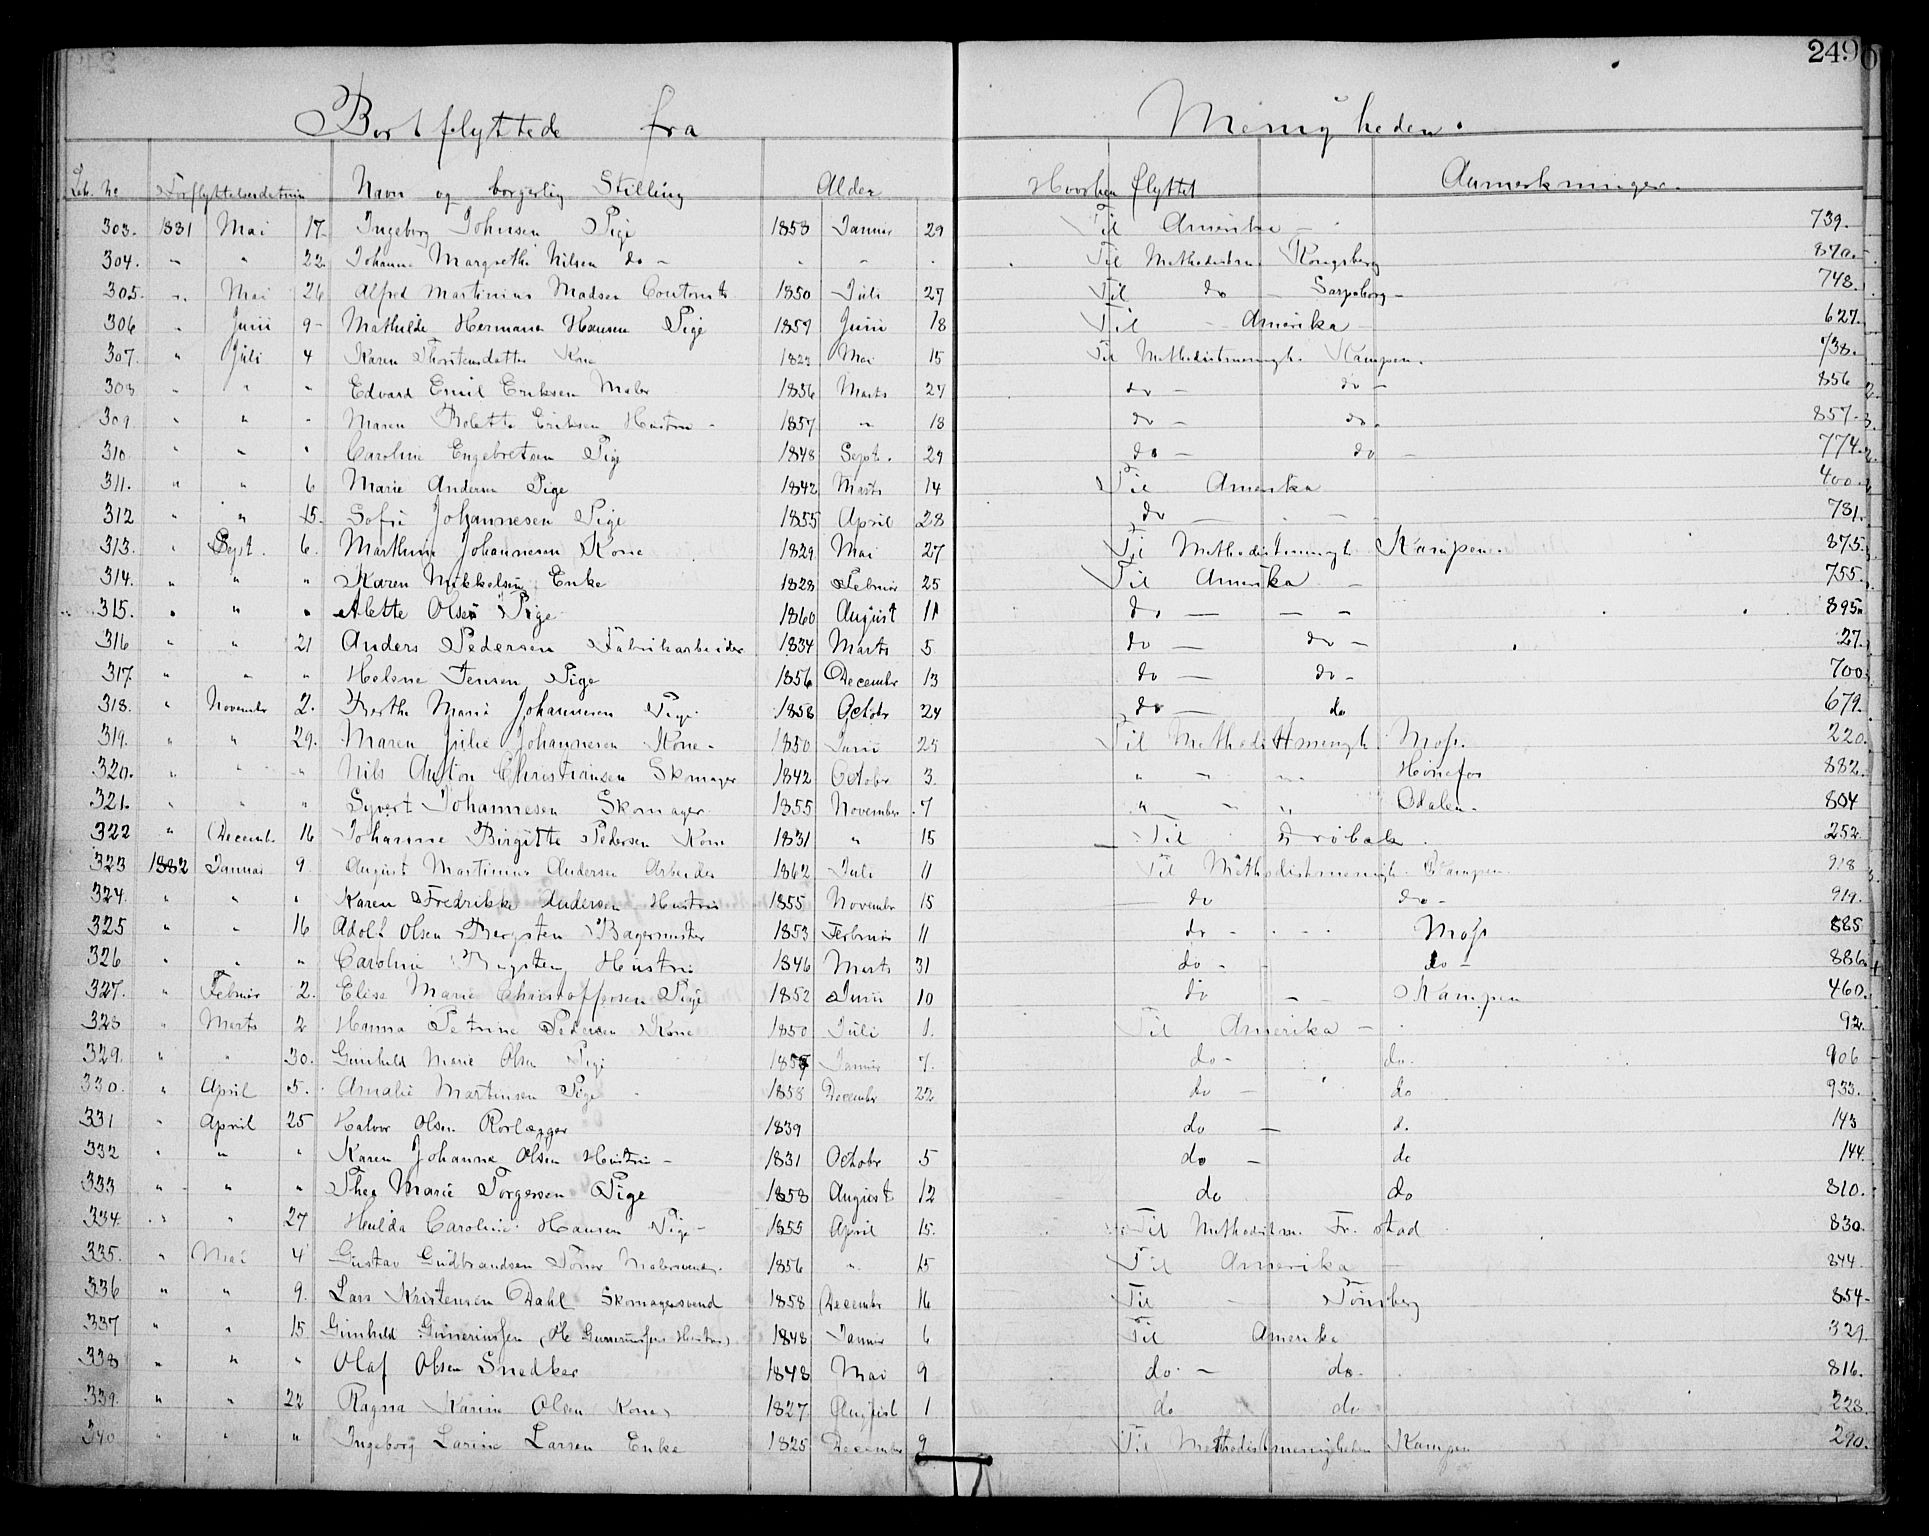 249
Bortflyttede fra Menigheden.
Lb. No Forflyttelsesdatum Navn og borgerlig Stilling Alder Hvorhen flyttet Anmerkninger.
303. 1881 Mai 17. Ingeborg Johnsen Pige 1853 Januar 29 Til Amerika — 739.
304. " " 22. Johanne Margrethe Nilsen do — " " . Til Methodistm. Kongsberg 870.
305. " Mai 26 Alfred Martinius Madsen Contorist 1850 Juli 27 Til do Sarpsborg — 748.
306 " Juni 9 Mathilde Hermana Hansen Pige 1859 Juni 18 Til — Amerika — 627.
307. " Juli 4 Karen Thorstensdatter Kone 1823 Mai 15 Til Methodistmenigh. Kampen. 738.
308 " " " Edvard Emil Eriksen Maler 1856 Marts 27 do — do — 856
309 " " " Maren Bolette Eriksen Hustru — 1857 " 18 do — do. 857
310. " " " Caroline Engebretsen Pige 1848 Sept. 29 do — do — 774.
311. " " 6 Marie Andersen Pige 1842 Marts 14 Til Amerika 400.
312 " " 15. Sofie Johannesen Pige 1855 April 28 do — — — 781.
313. " Sept. 6. Marthine Johannesen Kone 1829 Mai 27 Til Methodistmenigh. Kampen. 875.
314. " " " Karen Mikkelsen Enke 1828 Februar 25 Til Amerika — 755.
315. " " " Alette Olsen Pige 1860 August 11 do — — — 895.
316 " " 21 Anders Pedersen Fabrikarbeider 1834 Marts 5 do — do — 27.
317. " " " Helene Jensen Pige 1856 December 13 do — do — 700.
318. " November 2. Berthe Marie Johannesen Pige 1858 Octobr 24 do — do 679.
319. " " 29. Maren Julie Johannesen Kone — 1850 Juni 25 Til Methodistmenigh. Moss. 220.
320. " " " Nils Anton Christiansen Skomager 1842 October 3. " " " Hønefos 882.
321. " " " Syvert Johannesen Skomager 1855 November 7 " " " Odalen. 804
322 " Decemb. 16 Johanne Birgitte Pedersen Kone 1831 " 15 Til Drøbak. 252.
323 1882 Januar 9. August Martinius Andersen Arbeider 1862 Juli 11 Til Methodistmenigh. Kampen. 918
324. " " " Karen Fredrikke Andersen Hustru 1855 Novembr 15 do do — 919.
325 " " 16 Adolf Olsen Bergsten Bagermester 1853 Februar 11 do — Moss 885
326 " " " Caroline Bergsten Hustru 1846 Marts 31 do — do — 886.
327. " Februar 2. Elise Marie Christoffersen Pige 1852 Juni 10 do — — Kampen 460.
328 " Marts 2 Hanna Petrine Pedersen Kone 1850 Juli 1. Til Amerika — 92.
329. " " 30. Gunhild Marie Olsen Pige 1857 Januar 7. do — do. 906
330. " April 5. Amalie Martinsen Pige 1858 December 22 do — do 933.
331 " April 25 Halvor Olsen Rørlægger 1839 do — d. 143
332 " " " Karen Johanne Olsen Hustru — 1831 Octobr 5 do — do 144.
333 " " " Thea Marie Torgersen Pige 1858 August 12 do do 810.
334. " " 27 Hulda Caroline Hansen Pige — 1855 April 15. Til Methodistm. Fr. stad 830.
335. " Mai 4 Gustav Gudbrandsen Malersvend. 1856 " 15 Til Amerika — 844.
336 " " 9. Lars Kristensen Dahl Skomagersvend 1858 December 16 Til — Tønsberg 854
337 " " 15 Gunhild Gunneriussen (H. Gunneriussens Hustru) 1848 Januar 6 Til Amerika 329.
338 " " " Olaf Olsen Snedker 1848 Mai 9 do — do. 816.
339. " " 22 Ragna Karine Olsen Kone 1827 August 1 do do 228.
340 " " " Ingeborg Larine Larsen Enke 1825 December 9 Til Methodistmenigheden Kampen 290.